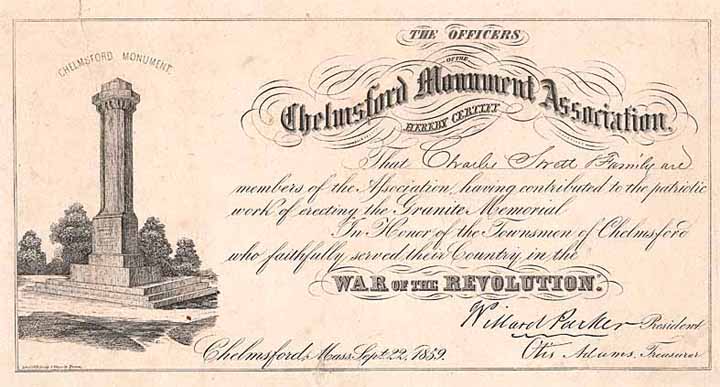 CHELMSFORD MONUMENT.
THE OFFICERS
OF THE
Chelmsford Monument Association.
HEREBY CERTIFY
That Charles Swett & Family are
members of the Association, having contributed to the patriotic
work of erecting the Granite Memorial
In Honor of the Townsmen of Chelmsford
who faithfully served their Country in the
WAR OF THE REVOLUTION.
Willard Parker President
Chelmsford, Mass. Sept. 22, 1859.
Otis Adams, Treasurer